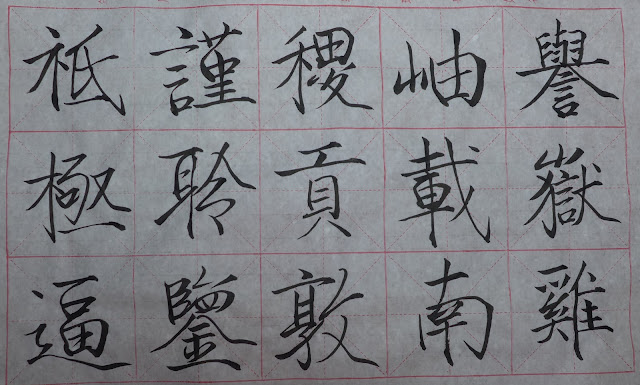 譽嶽雞
岫載南
稷貢敦
謹聆鑒
祗極逼